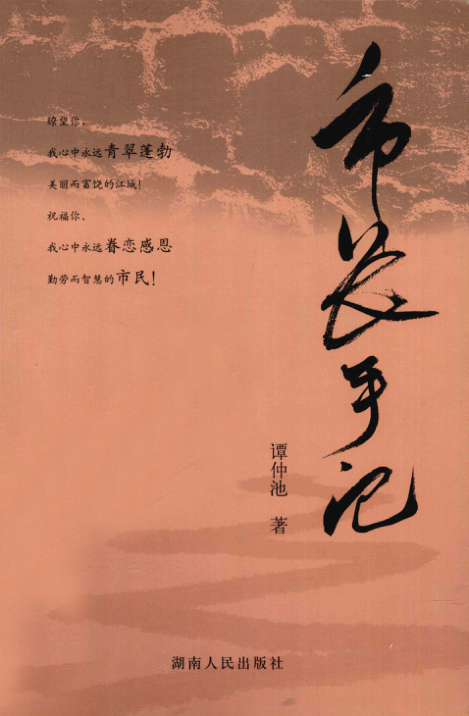 市长手记
瞭望你，
我心中永远青翠蓬勃
美丽而富饶的江城！
祝福你，
我心中永远眷恋感恩
勤劳而智慧的市民！
谭仲池 著
湖南人民出版社